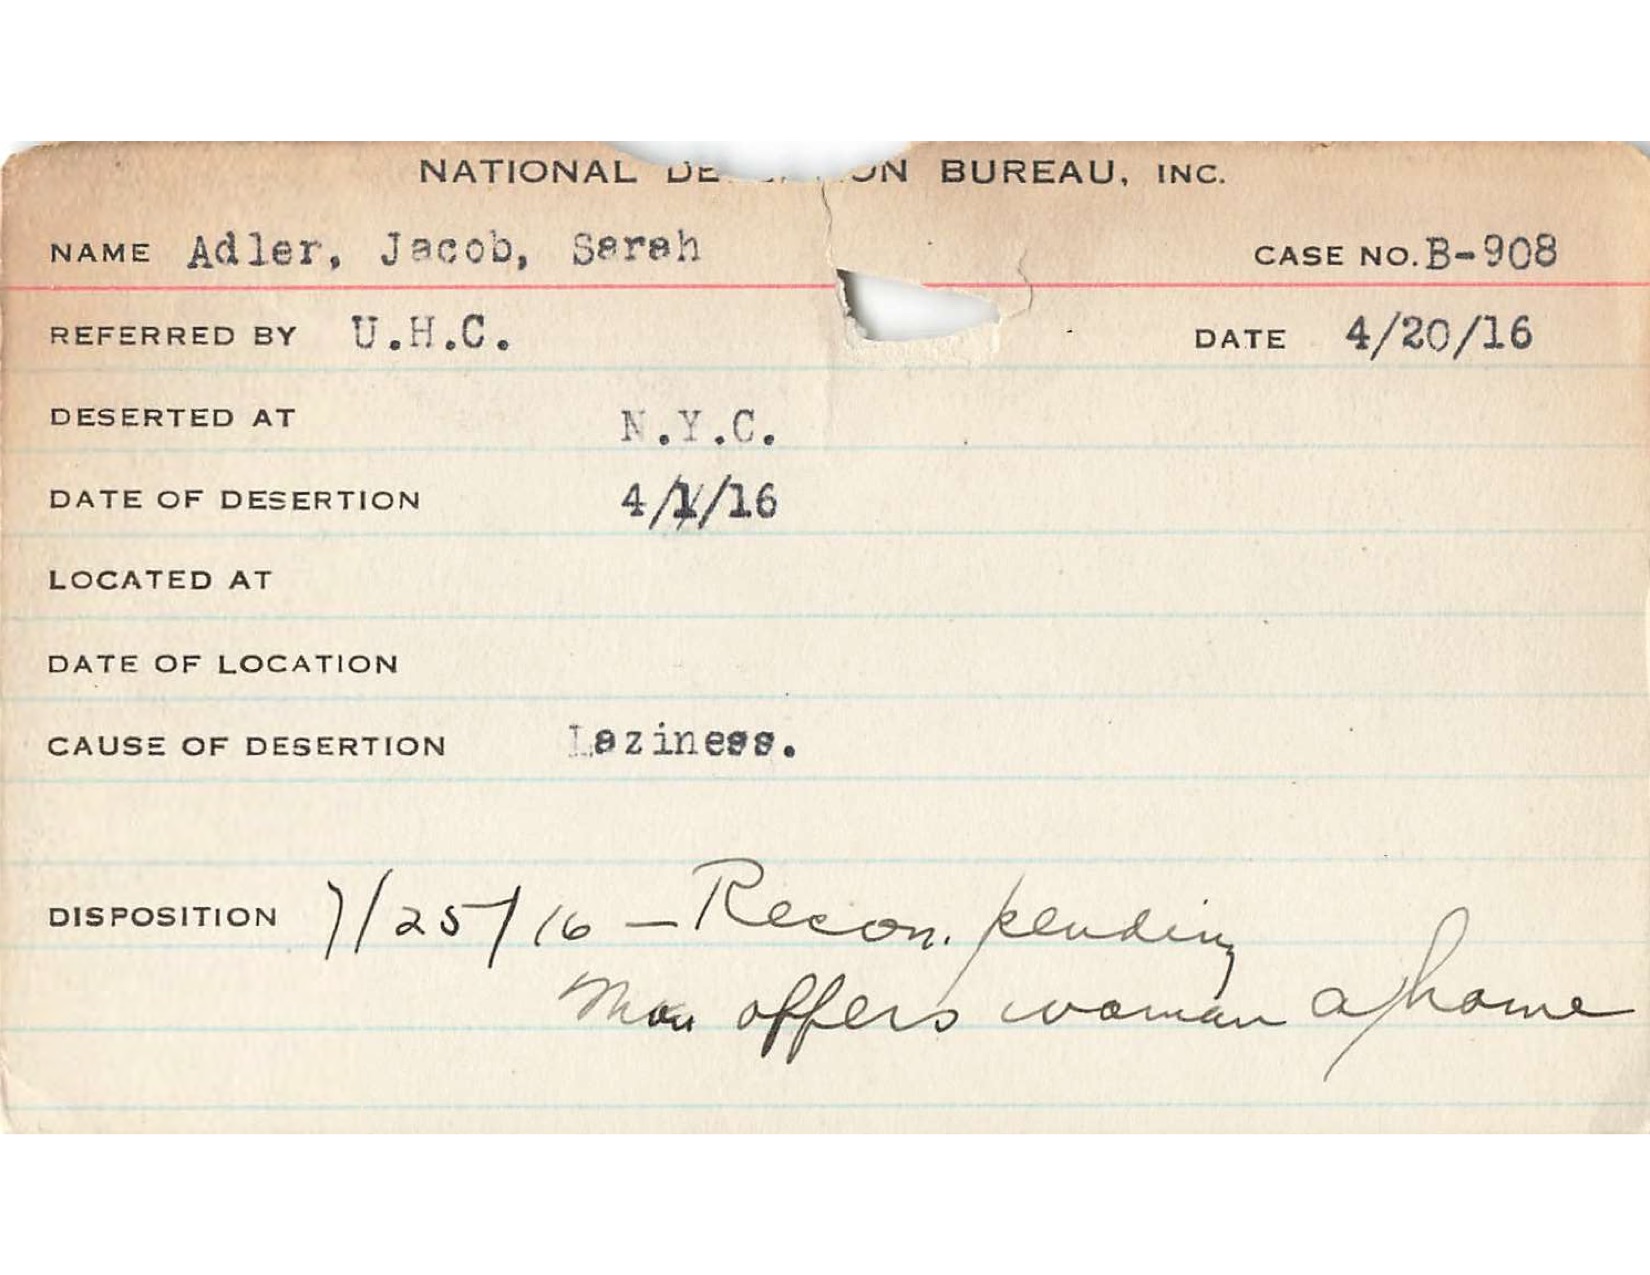 NATIONAL DE ON BUREAU, INC.
NAME Adler, Jacob, Sarah CASE NO. B-908
REFERRED BY U.H.C. DATE 4/20/16
DESERTED AT N.Y.C.
DATE OF DESERTION 4/1/16
LOCATED AT
DATE OF LOCATION
CAUSE OF DESERTION Laziness.
DISPOSITION 7/25/16 — Recon. pending
Man offers woman a home